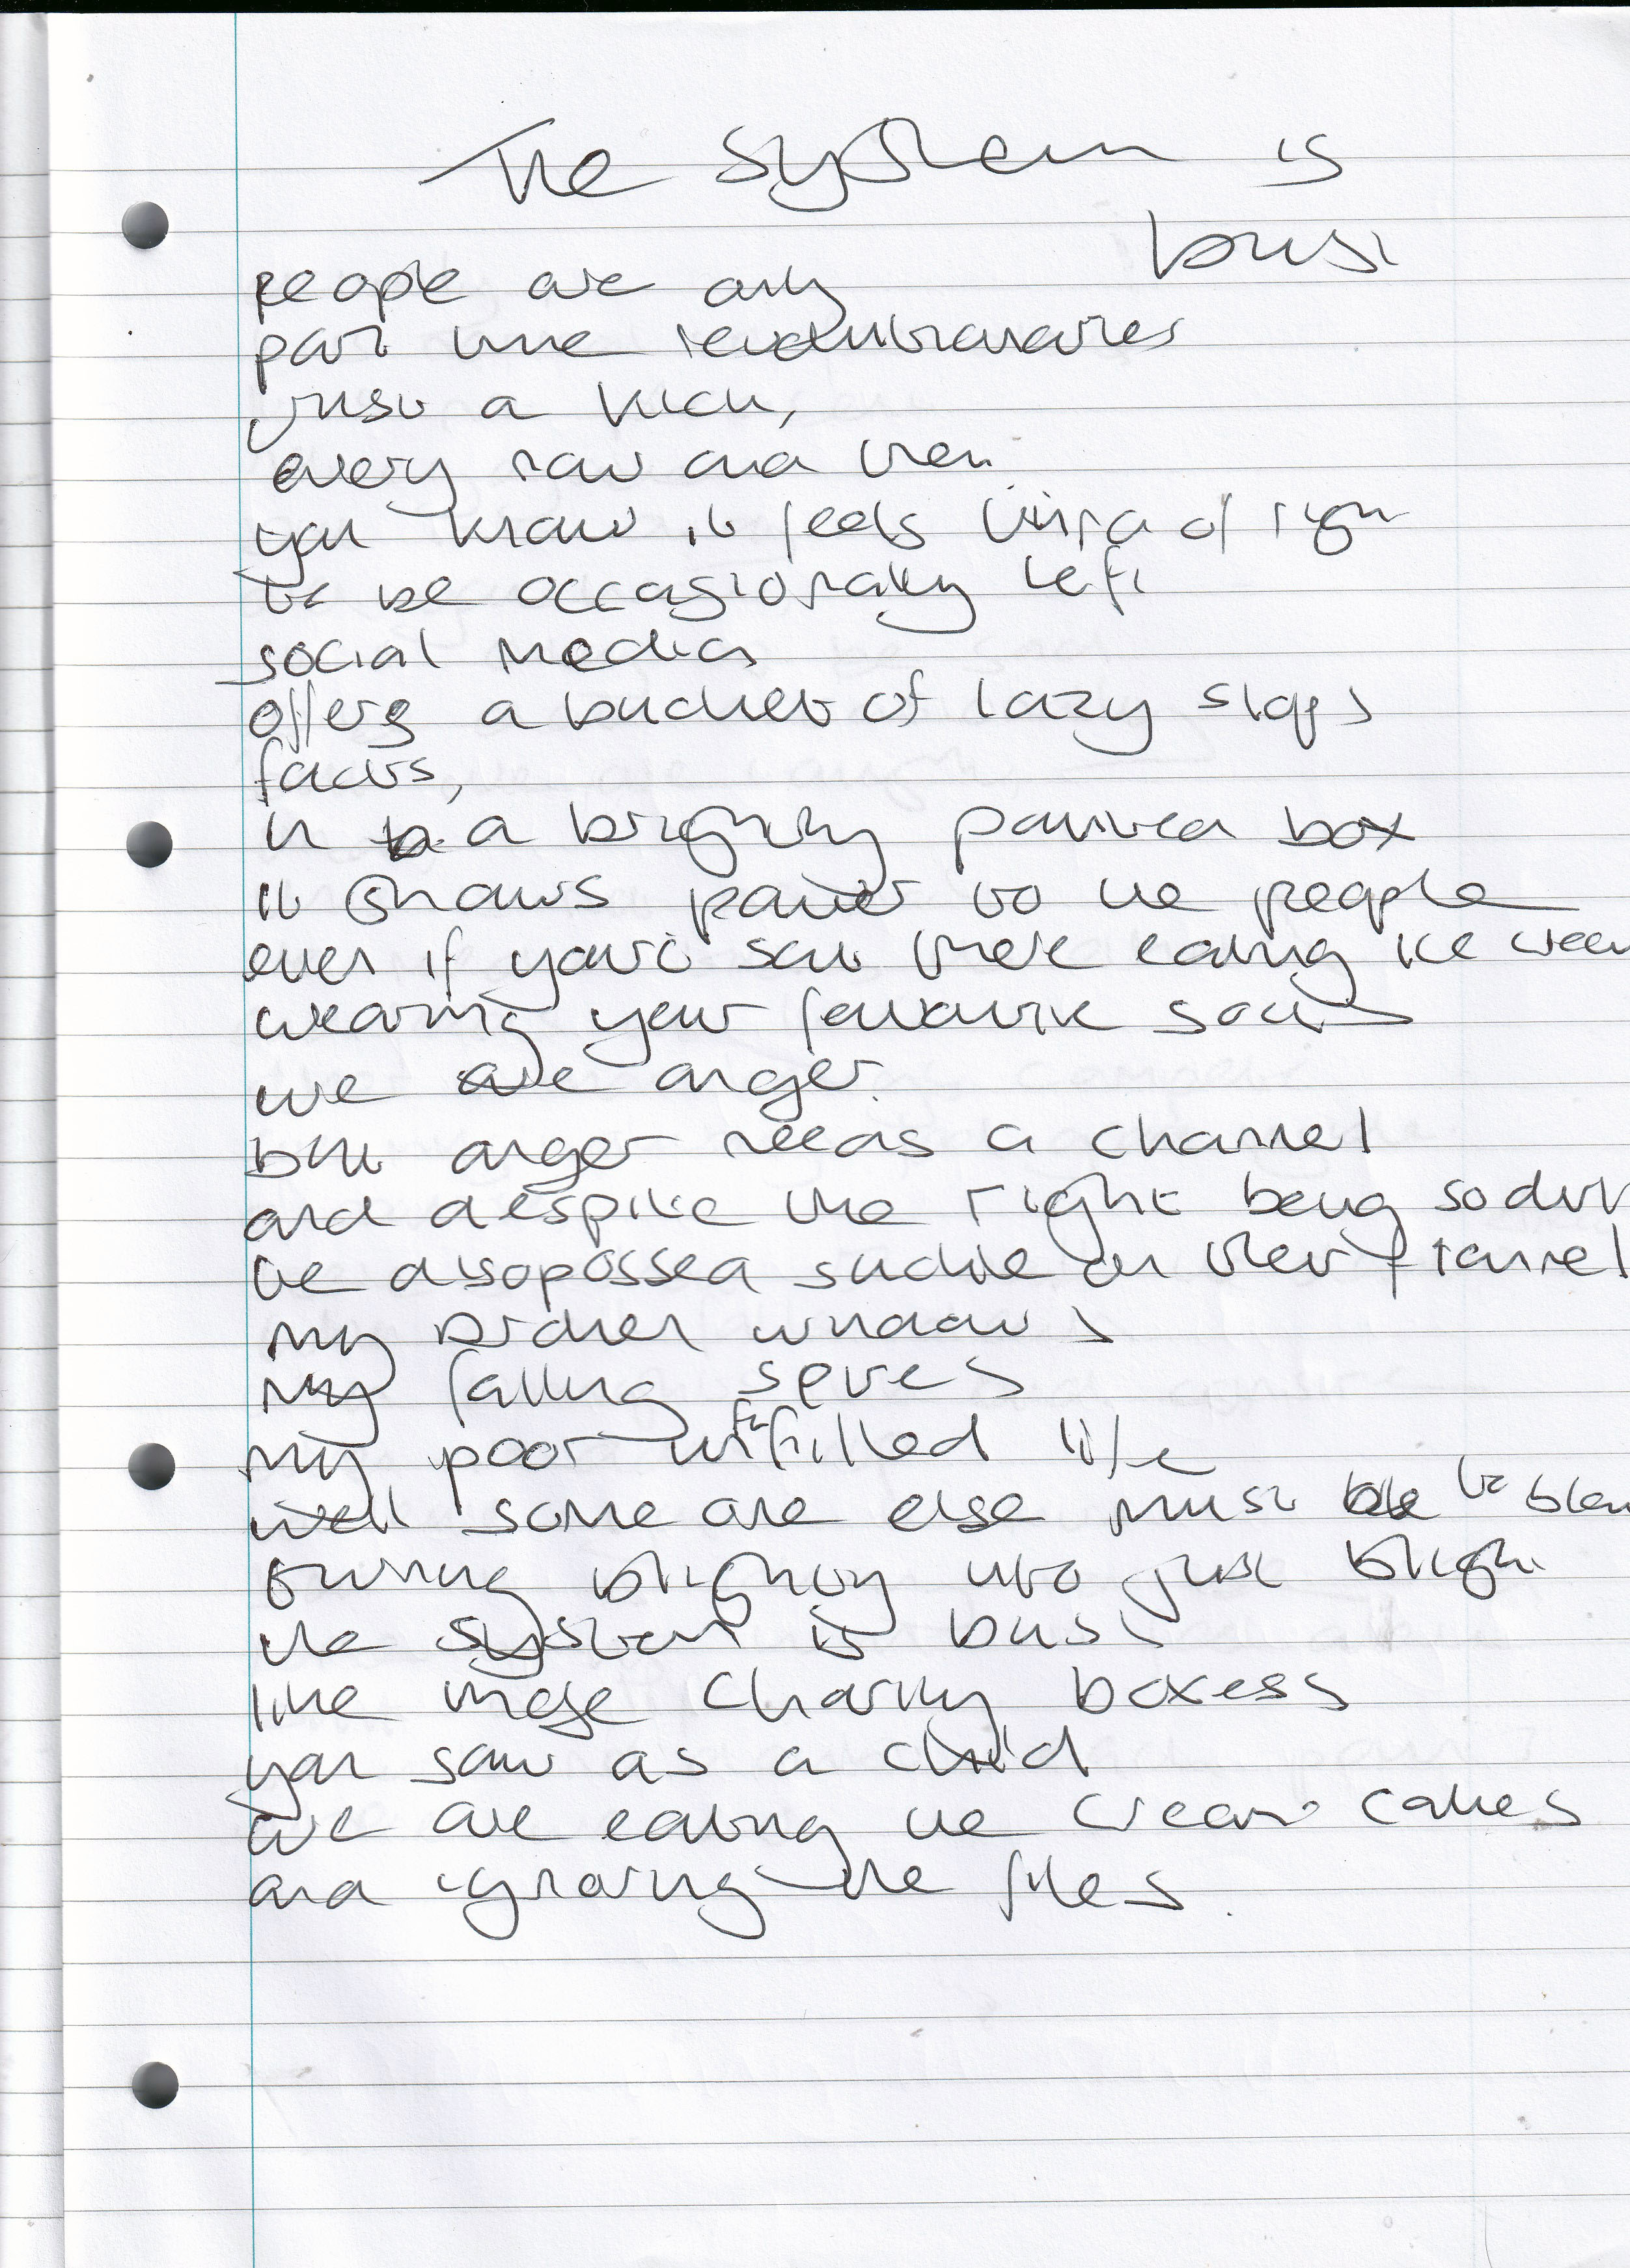 The system is
bust
people are only
part time revolutionaries
just a kick,
every now and then
you know it feels kinda of right
to be occasionally left
social media
offers a bucket of lazy slaps
facts,
in a brightly painted box
it shows power to the people
even if your sat there eating ice cream
wearing your favourite socks
we are anger.
but anger needs a channel
and despite the right being so
the disopossed suckle on their flannel
my broken windows
my falling
my poor unfufilled life
well some one else must be to
turning blighty into just blight
the system is bust
like those charity boxess
you saw as a child
we are eating the cream cakes
and ignoring the files.